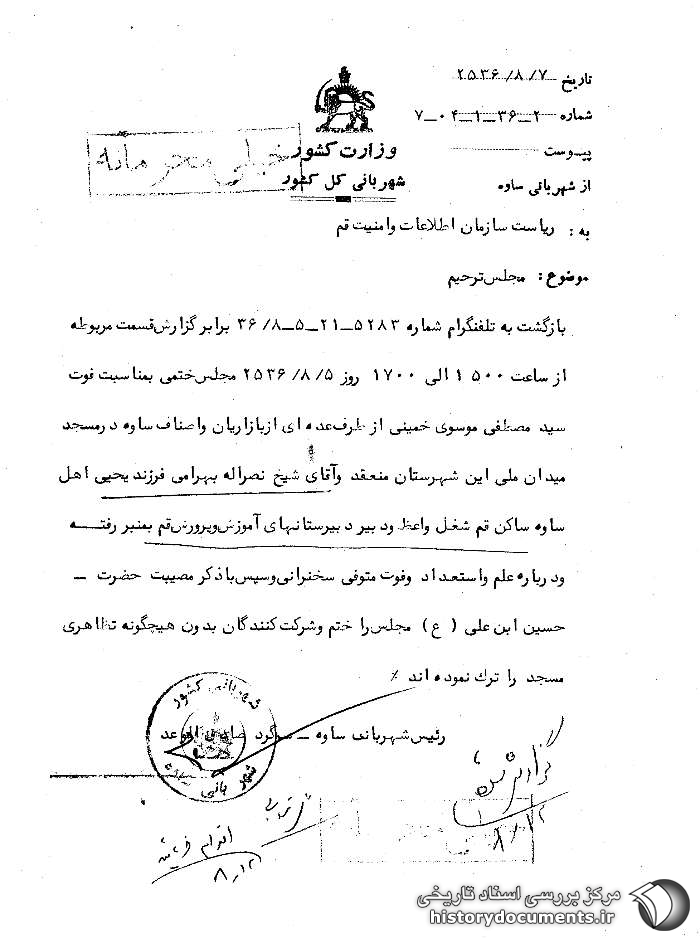 تاریخ ۲۵۳۶/۸/۷
شماره ۲ــ۳۶ــ۱ــ۰۴ــ۷
پیوست
وزارت کشور
شهربانی کل کشور
خیلی محرمانه
از شهربانی ساوه
به : ریاست سازمان اطلاعات وامنیت قم
موضوع : مجلس ترحیم
بازگشت به تلفنگرام شماره ۵۲۸۳ــ۲۱ــ۵ــ۳۶/۸ برابر گزارش قسمت مربوطه
از ساعت ۱۵۰۰ الی ۱۷۰۰ روز ۲۵۳۶/۸/۵ مجلس ختمی بمناسبت فوت
سید مصطفی موسوی خمینی از طرف عده ای ازبازاریان واصناف ساوه درمسجد
میدان ملی این شهرستان منعقد وآقای شیخ نصراله بهرامی فرزند یحیی اهل
ساوه ساکن قم شغل واعظ ودبیر دبیرستانهای آموزش وپرورش قم بمنبر رفتـه
ودرباره علم واستعداد وفوت متوفی سخنرانی وسپس باذکر مصیبت حضرت ــ
حسین ابن علی ( ع ) مجلس را ختم وشرکت کنندگان بدون هیچگونه تظاهری
مسجد را ترك نموده اند ٪
رئیس شهربانی ساوه ــ سرگرد
شهربانی کشور
شهربانی
گزارش شد
۸/۱۲
اقدام
۸/۱۲
مرکز بررسی اسناد تاریخی
historydocuments.ir